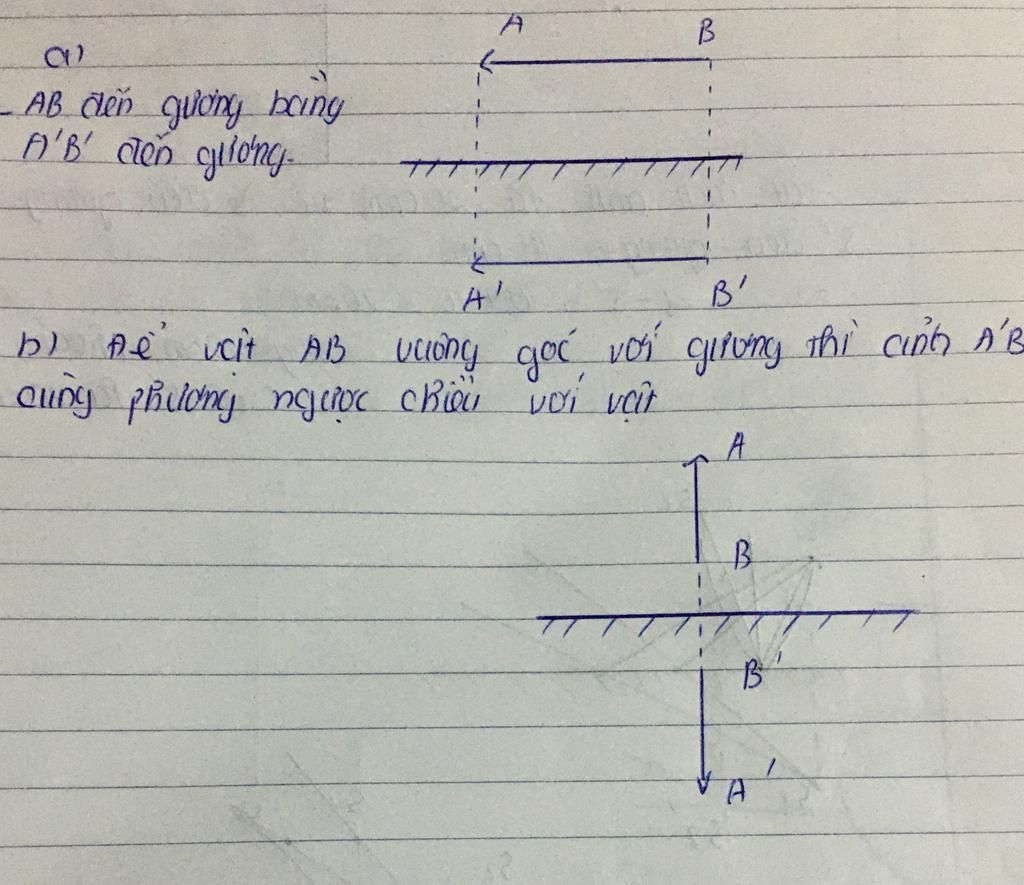 a)
A B
- AB đến gương bằng
A'B' đến gương.
A' B'
b) Để vật AB vuông góc với gương thì ảnh A'B
cùng phương ngược chiều với vật
A
B
B'
A'